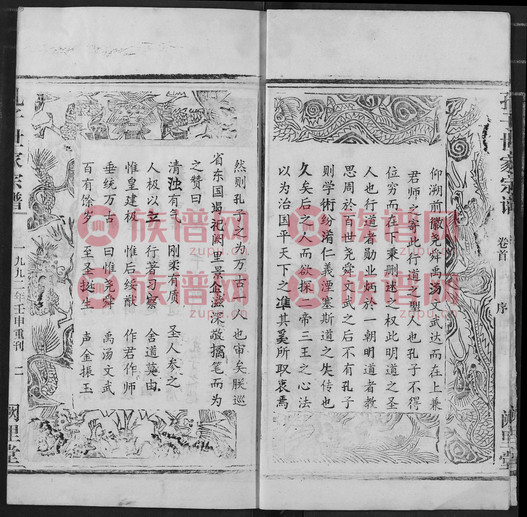 孔子世家宗谱
卷首
序
阙里堂
仰溯前徽尧舜禹汤文武达而在上兼
君师之寄此行道之圣人也孔子不得
位穷而在下秉删述之权此明道之圣
人也行道者勋业炳於一朝明道者教
思周於百世尧舜文武之后不有孔子
则学術纷淆仁義湮塞斯道之失传也
久矣后之人而欲探二帝三王之心法
以为治国平天下之準其奚所取衷焉
然则孔子之为万古一人也审矣朕巡
省东国谒祀阙里景企滋深敬摛笔而为
之赞曰
清浊有气 刚柔有质 圣人参之
人极以立 行著习察 舍道莫由
惟皇建极 惟后绥猷 作君作师
垂统万古 曰惟尧舜 禹汤文武
百有馀岁 至圣挺生 声金振玉
孔子世家宗谱
一九九二年壬申重刊
二
阙里堂
族谱网
zupu.cn